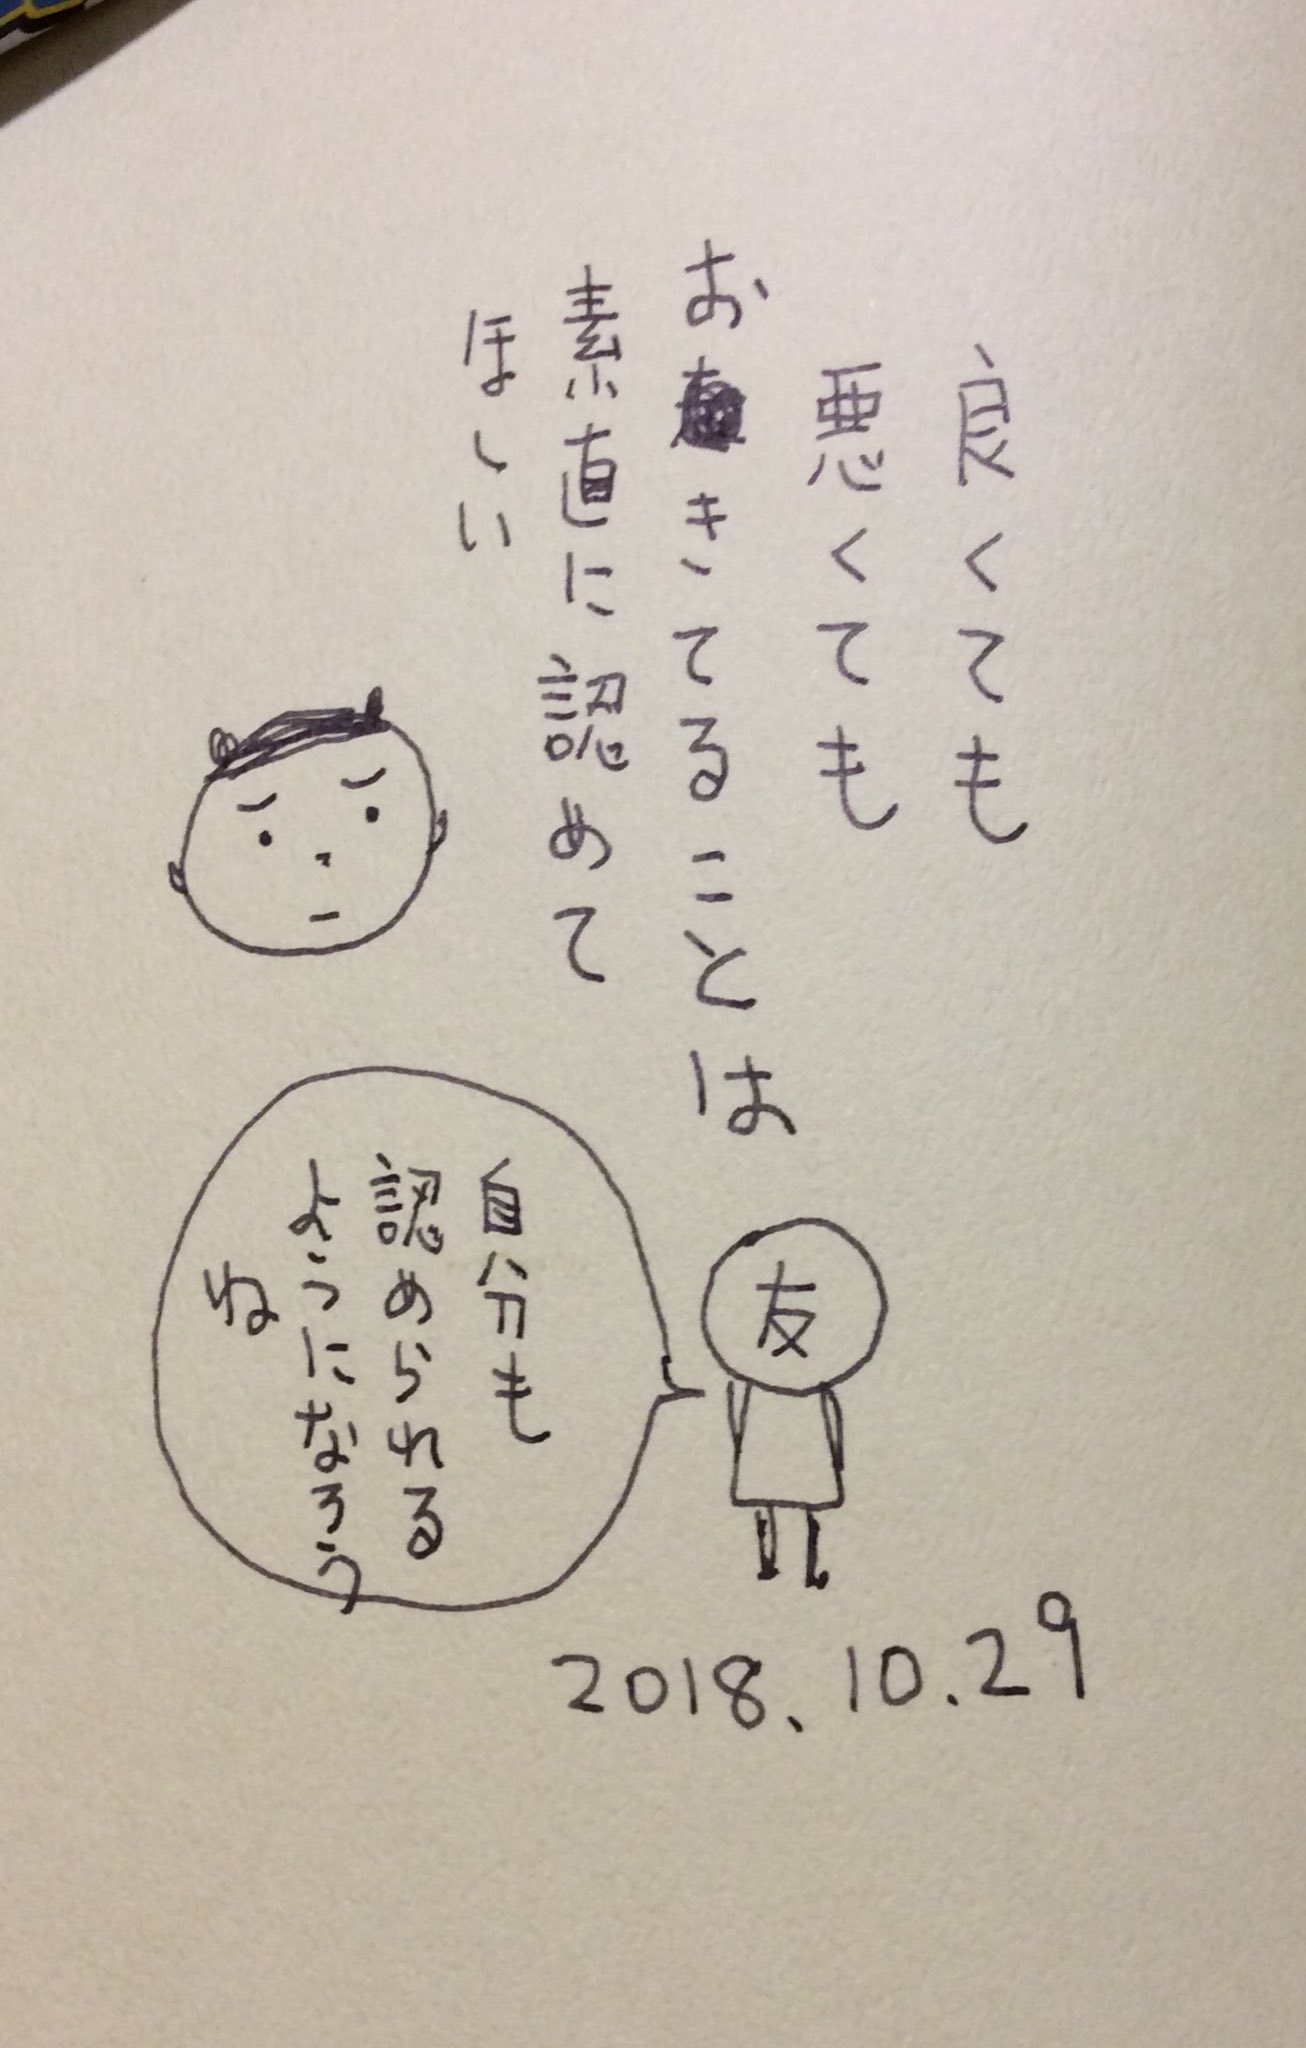 良くても
悪くても
おきてることは
素直に認めて
ほしい
友
自分も
認められる
ようになろう
ね
2018.10.29